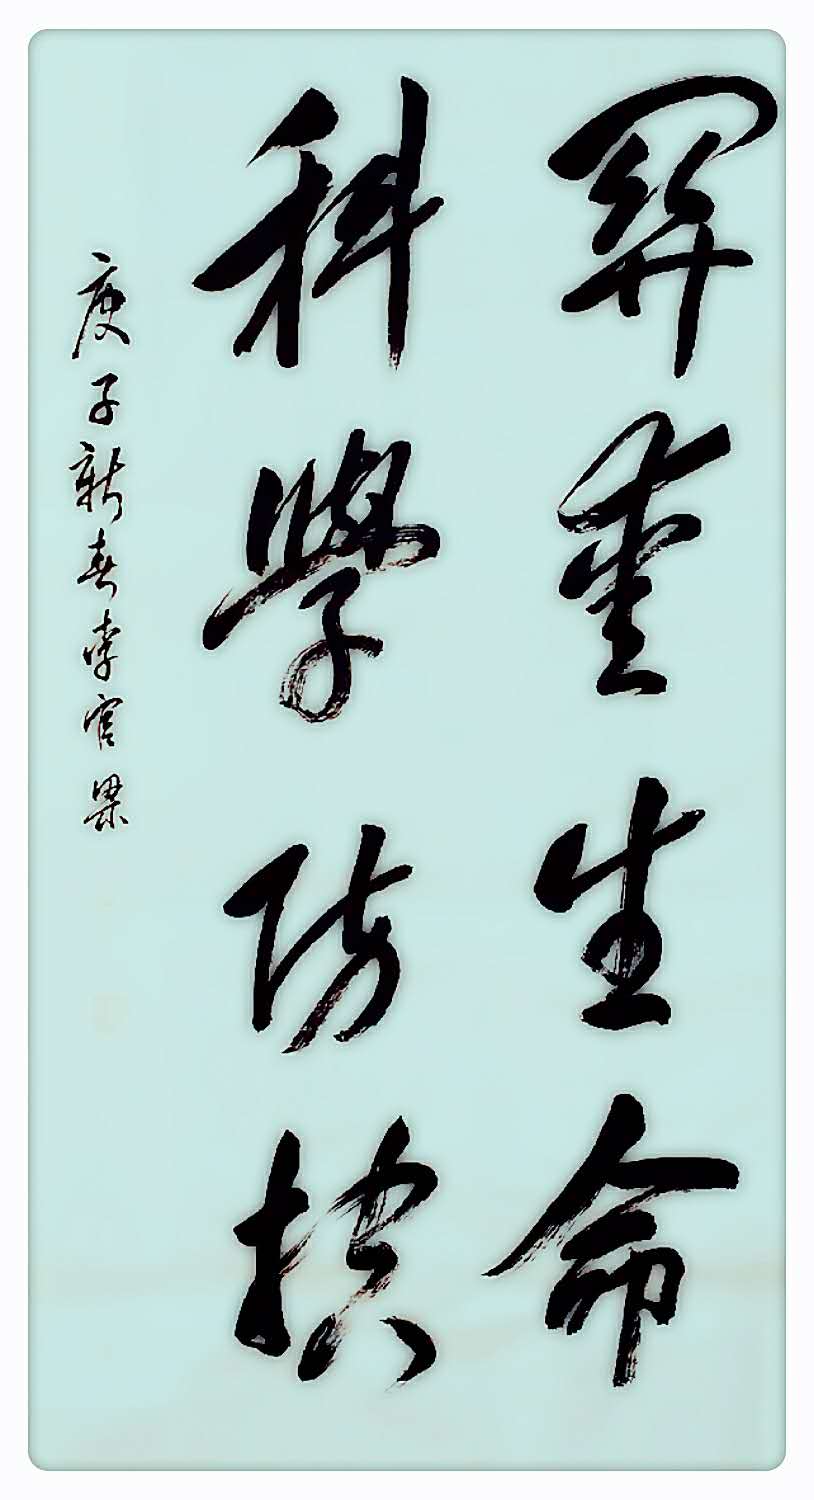 關愛生命
科學防控
庚子新春李官梁